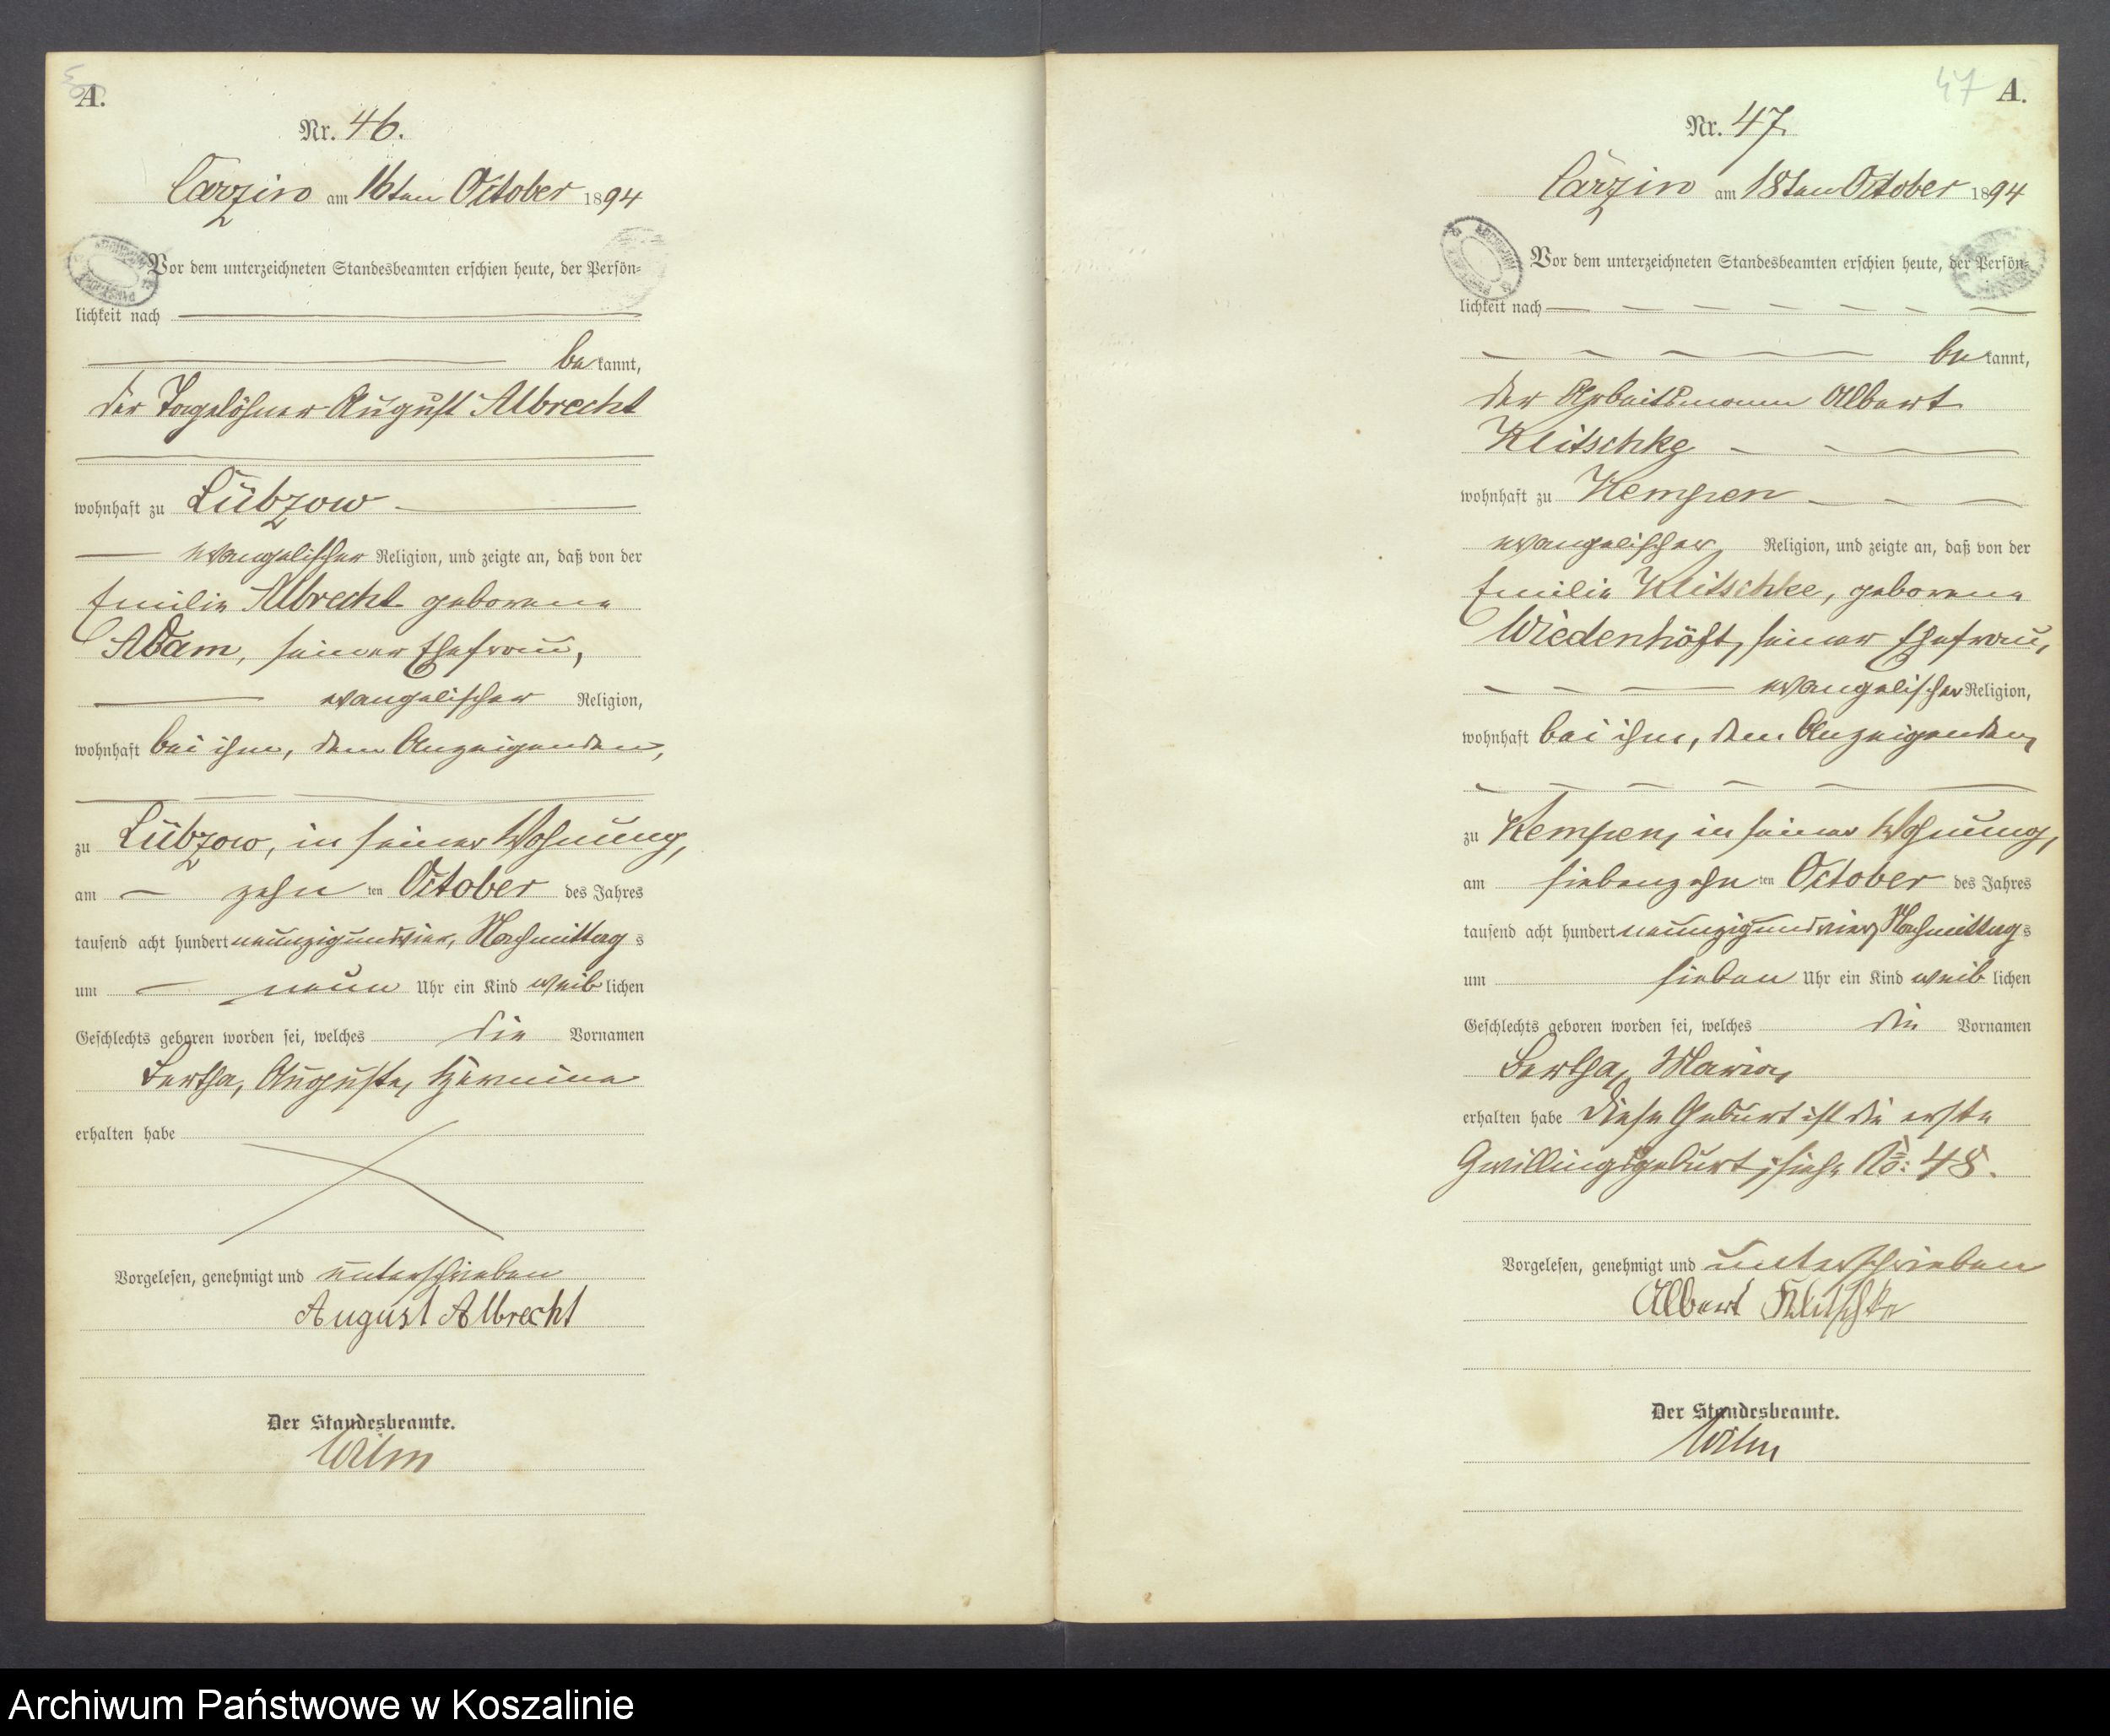 A.
Nr. 46.
Carzin am 16ten October 1894
Vor dem unterzeichneten Standesbeamten erschien heute, der Persön-
lichkeit nach
be kannt,
der Tagelöhner August Albrecht
wohnhaft zu Lübzow
evangelischer Religion, und zeigte an, daß von der
Emilie Albrecht geborene
Adam, seiner Ehefrau,
evangelischer Religion,
wohnhaft bei ihm, dem Anzeigenden,
zu Lübzow, in seiner Wohnung,
am zehn ten October des Jahres
tausend acht hundert neunzigundvier, Nachmittag s
um neun Uhr ein Kind weib lichen
Geschlechts geboren worden sei, welches die Vornamen
Bertha, Auguste, Hermine
erhalten habe
Vorgelesen, genehmigt und unterschrieben
August Albrecht
Der Standesbeamte.
Wilm
47 A.
Nr. 47.
Carzin am 18ten October 1894
Vor dem unterzeichneten Standesbeamten erschien heute, der Persön-
lichkeit nach
be kannt,
der Arbeitsmann Albert
Klitschke
wohnhaft zu Kempen
evangelischer Religion, und zeigte an, daß von der
Emilie Klitschke, geborene
Wiedenhöft, seiner Ehefrau,
evangelischer Religion,
wohnhaft bei ihm, dem Anzeigenden,
zu Kempen, in seiner Wohnung,
am siebenzehn ten October des Jahres
tausend acht hundert neunzigundvier, Nachmittag s
um sieben Uhr ein Kind weib lichen
Geschlechts geboren worden sei, welches die Vornamen
Bertha, Maria,
erhalten habe Diese Geburt ist die erste
Zwillingsgeburt; siehe No: 48.
Vorgelesen, genehmigt und unterschrieben
Albert Klitschke
Der Standesbeamte.
Wilm
Archiwum Państwowe w Koszalinie